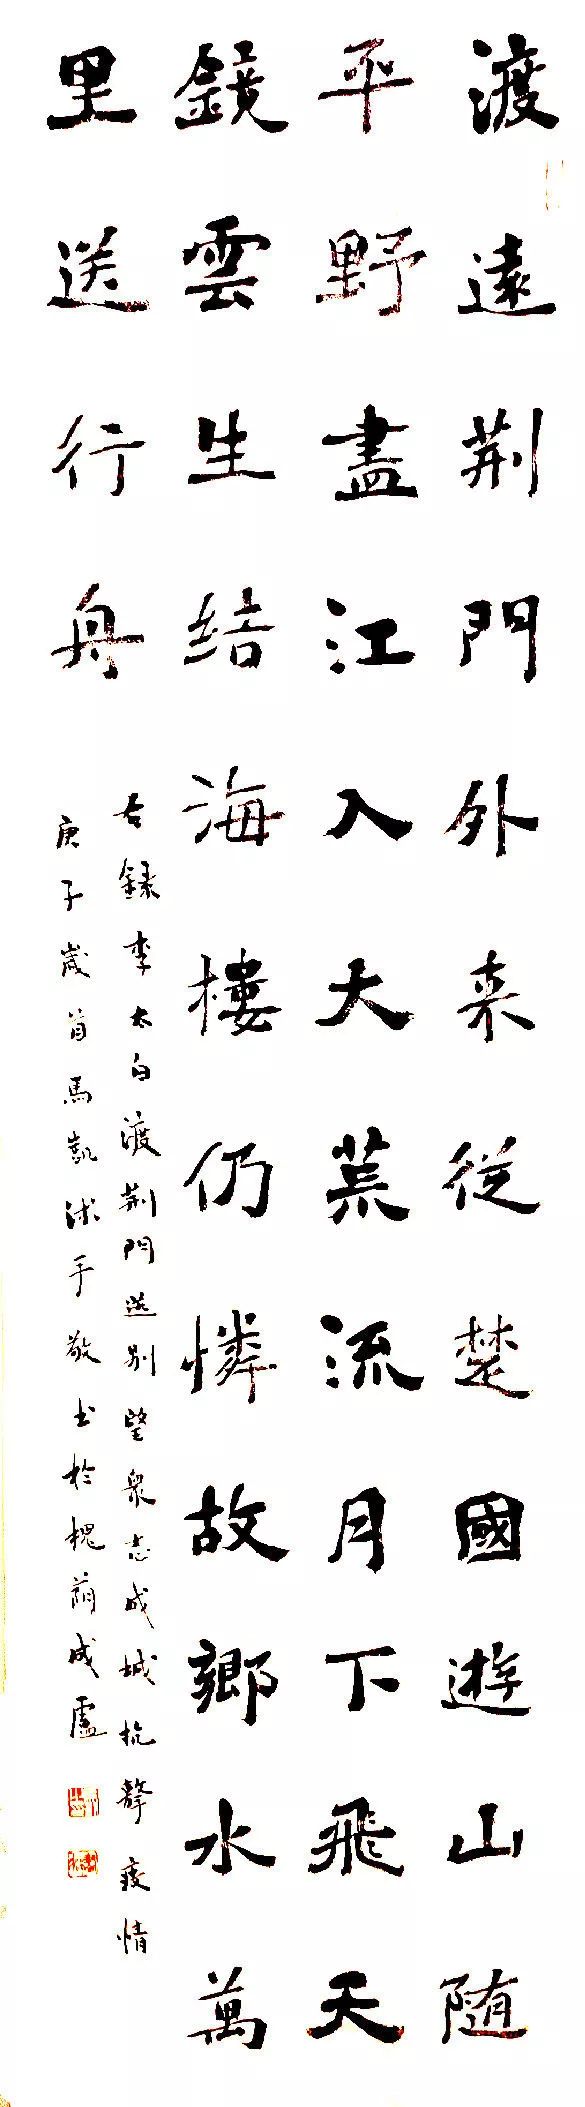 渡遠荆門外来從楚國遊山随
平野盡江入大荒流月下飛天
鏡雲生結海樓仍憐故鄉水萬
里送行舟
右録李太白渡荆門送别望衆志成城抗擊疫情
庚子歲首馬凱沐手敬书於槐蔭成廬